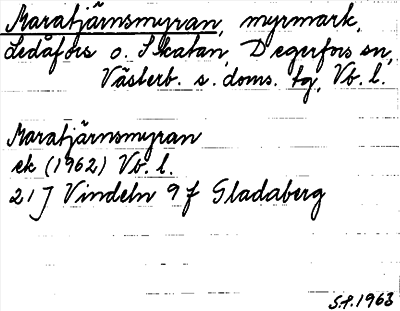 Maratjärnsmyran, myrmark,
Ledåfors o. Skatan, Degerfors sn,
Västerb. s. doms. tg, Vb. l.
Maratjärnsmyran
ek (1962) Vb. l.
21 J Vindeln 9 f Gladaberg
S.F. 1963